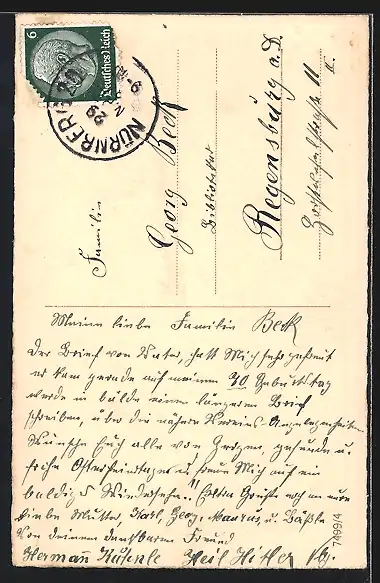 6
Deutsches Reich
NÜRNBERG
29
Familie
Georg Beck
Bibliothekar
Regensburg a. D.
11
II.
Meine liebe Familie Beck
Der Brief von Vater, hatt Mich sehr gefreut
er kam gerade auf meinen 30 Geburtstag
werde in bälde einen längeren Brief
schreiben, über die nähern Vereins-Angelegenheiten
Wünsche Euch alle von Herzen, gesunde u.
frohe Osterfeiertage u. freue Mich auf ein
baldigs Wiedersehn. Grüße noch an eure
liebe Mutter, Karl, Georg, u.
Von deinem dankbaren Freund
Hermann Heil Hitler
7499/4